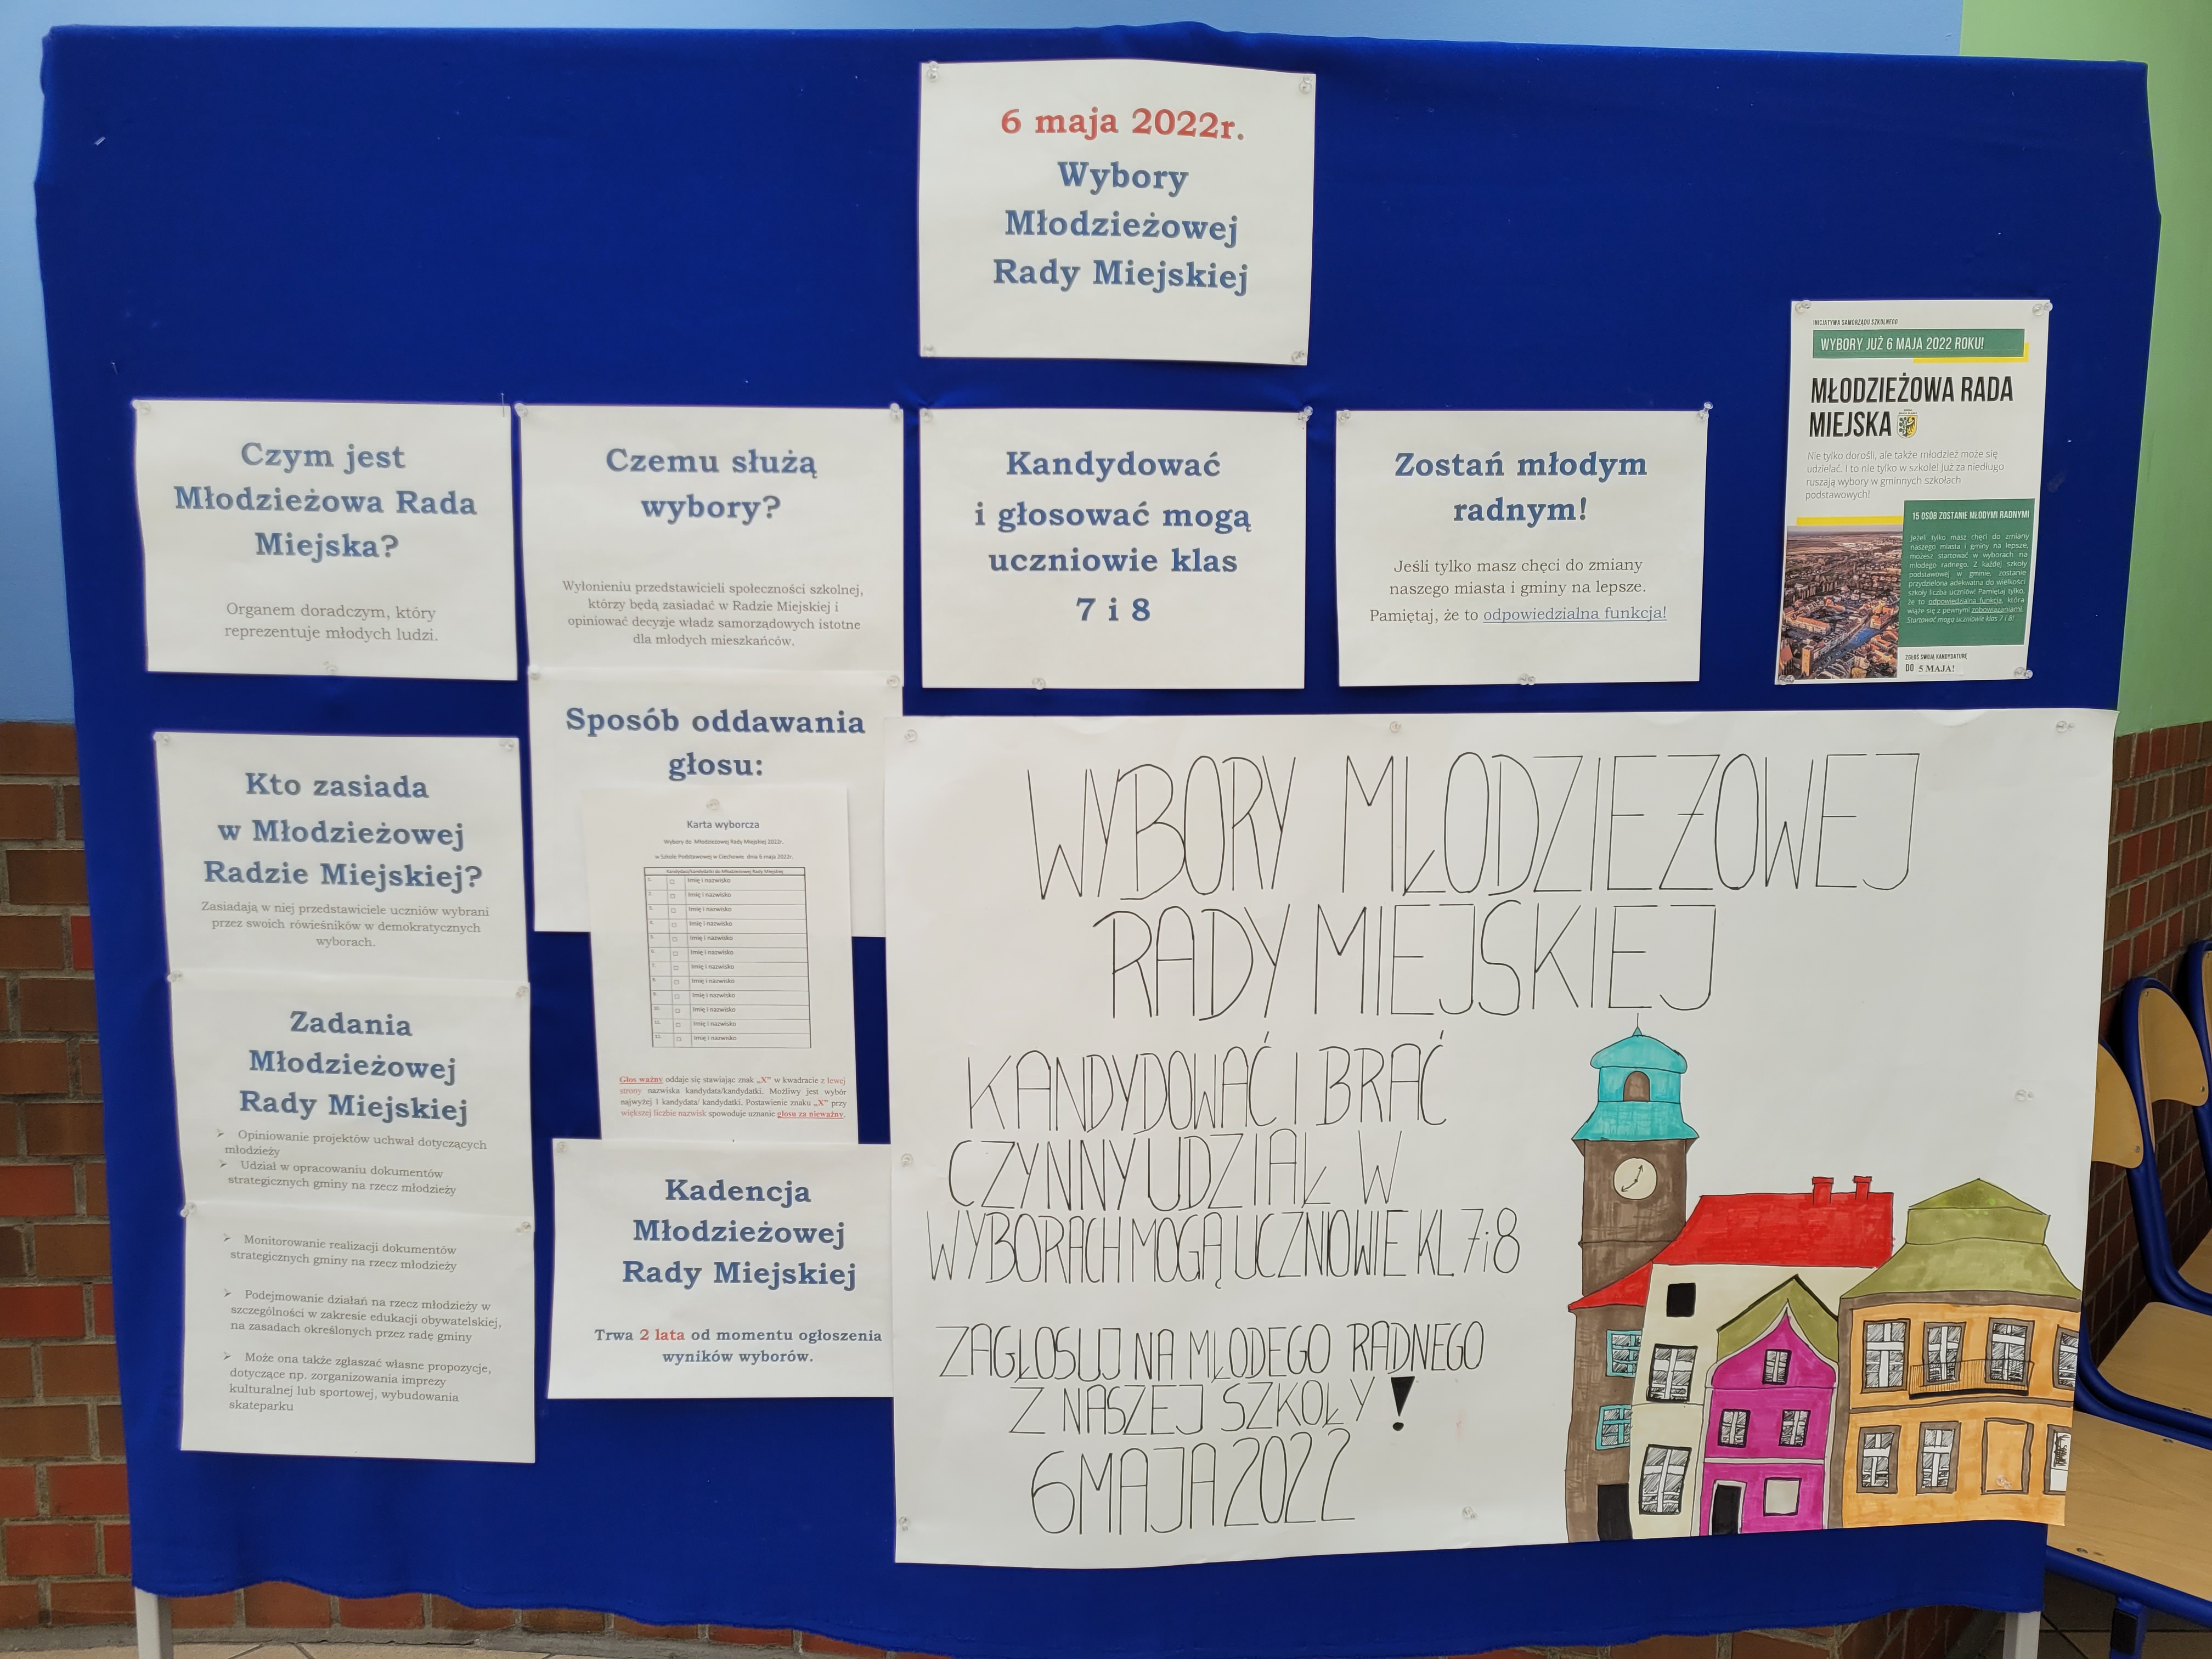 6 maja 2022r.
Wybory
Młodzieżowej
Rady Miejskiej
Czym jest
Młodzieżowa Rada
Miejska?
Organem doradczym, który
reprezentuje młodych ludzi.
Czemu służą
wybory?
Wyłonieniu przedstawicieli społeczności szkolnej,
którzy będą zasiadać w Radzie Miejskiej i
opiniować decyzje władz samorządowych istotne
dla młodych mieszkańców.
Kandydować
i głosować mogą
uczniowie klas
7 i 8
Zostań młodym
radnym!
Jeśli tylko masz chęci do zmiany
naszego miasta i gminy na lepsze.
Pamiętaj, że to odpowiedzialna funkcja!
INICJATYWA SAMORZĄDU SZKOLNEGO
WYBORY JUŻ 6 MAJA 2022 ROKU!
MŁODZIEŻOWA RADA
MIEJSKA
Nie tylko dorośli, ale także młodzież może się
udzielać. I to nie tylko w szkole! Już za niedługo
ruszają wybory w gminnych szkołach
podstawowych!
15 OSÓB ZOSTANIE MŁODYMI RADNYMI
Jeżeli tylko masz chęci do zmiany
naszego miasta i gminy na lepsze,
możesz startować w wyborach na
młodego radnego. Z każdej szkoły
podstawowej w gminie, zostanie
przydzielona adekwatna do wielkości
szkoły liczba uczniów! Pamiętaj tylko,
że to odpowiedzialna funkcja, która
wiąże się z pewnymi zobowiązaniami.
Startować mogą uczniowie klas 7 i 8!
ZGŁOŚ SWOJĄ KANDYDATURĘ
DO 5 MAJA!
Kto zasiada
w Młodzieżowej
Radzie Miejskiej?
Zasiadają w niej przedstawiciele uczniów wybrani
przez swoich rówieśników w demokratycznych
wyborach.
Zadania
Młodzieżowej
Rady Miejskiej
➢ Opiniowanie projektów uchwał dotyczących
młodzieży
➢ Udział w opracowaniu dokumentów
strategicznych gminy na rzecz młodzieży
➢ Monitorowanie realizacji dokumentów
strategicznych gminy na rzecz młodzieży
➢ Podejmowanie działań na rzecz młodzieży w
szczególności w zakresie edukacji obywatelskiej,
na zasadach określonych przez radę gminy
➢ Może ona także zgłaszać własne propozycje,
dotyczące np. zorganizowania imprezy
kulturalnej lub sportowej, wybudowania
skateparku
Sposób oddawania
głosu:
Karta wyborcza
Wybory do Młodzieżowej Rady Miejskiej 2022r.
w Szkole Podstawowej w Ciechowie dnia 6 maja 2022r.
Kandydaci/kandydatki do Młodzieżowej Rady Miejskiej
1. □ Imię i nazwisko
2. □ Imię i nazwisko
3. □ Imię i nazwisko
4. □ Imię i nazwisko
5. □ Imię i nazwisko
6. □ Imię i nazwisko
7. □ Imię i nazwisko
8. □ Imię i nazwisko
9. □ Imię i nazwisko
10. □ Imię i nazwisko
11. □ Imię i nazwisko
12. □ Imię i nazwisko
Głos ważny oddaje się stawiając znak „X” w kwadracie z lewej
strony nazwiska kandydata/kandydatki. Możliwy jest wybór
najwyżej 1 kandydata/ kandydatki. Postawienie znaku „X” przy
większej liczbie nazwisk spowoduje uznanie głosu za nieważny.
Kadencja
Młodzieżowej
Rady Miejskiej
Trwa 2 lata od momentu ogłoszenia
wyników wyborów.
WYBORY MŁODZIEŻOWEJ
RADY MIEJSKIEJ
KANDYDOWAĆ I BRAĆ
CZYNNY UDZIAŁ W
WYBORACH MOGĄ UCZNIOWIE KL 7i8
ZAGŁOSUJ NA MŁODEGO RADNEGO
Z NASZEJ SZKOŁY!
6 MAJA 2022